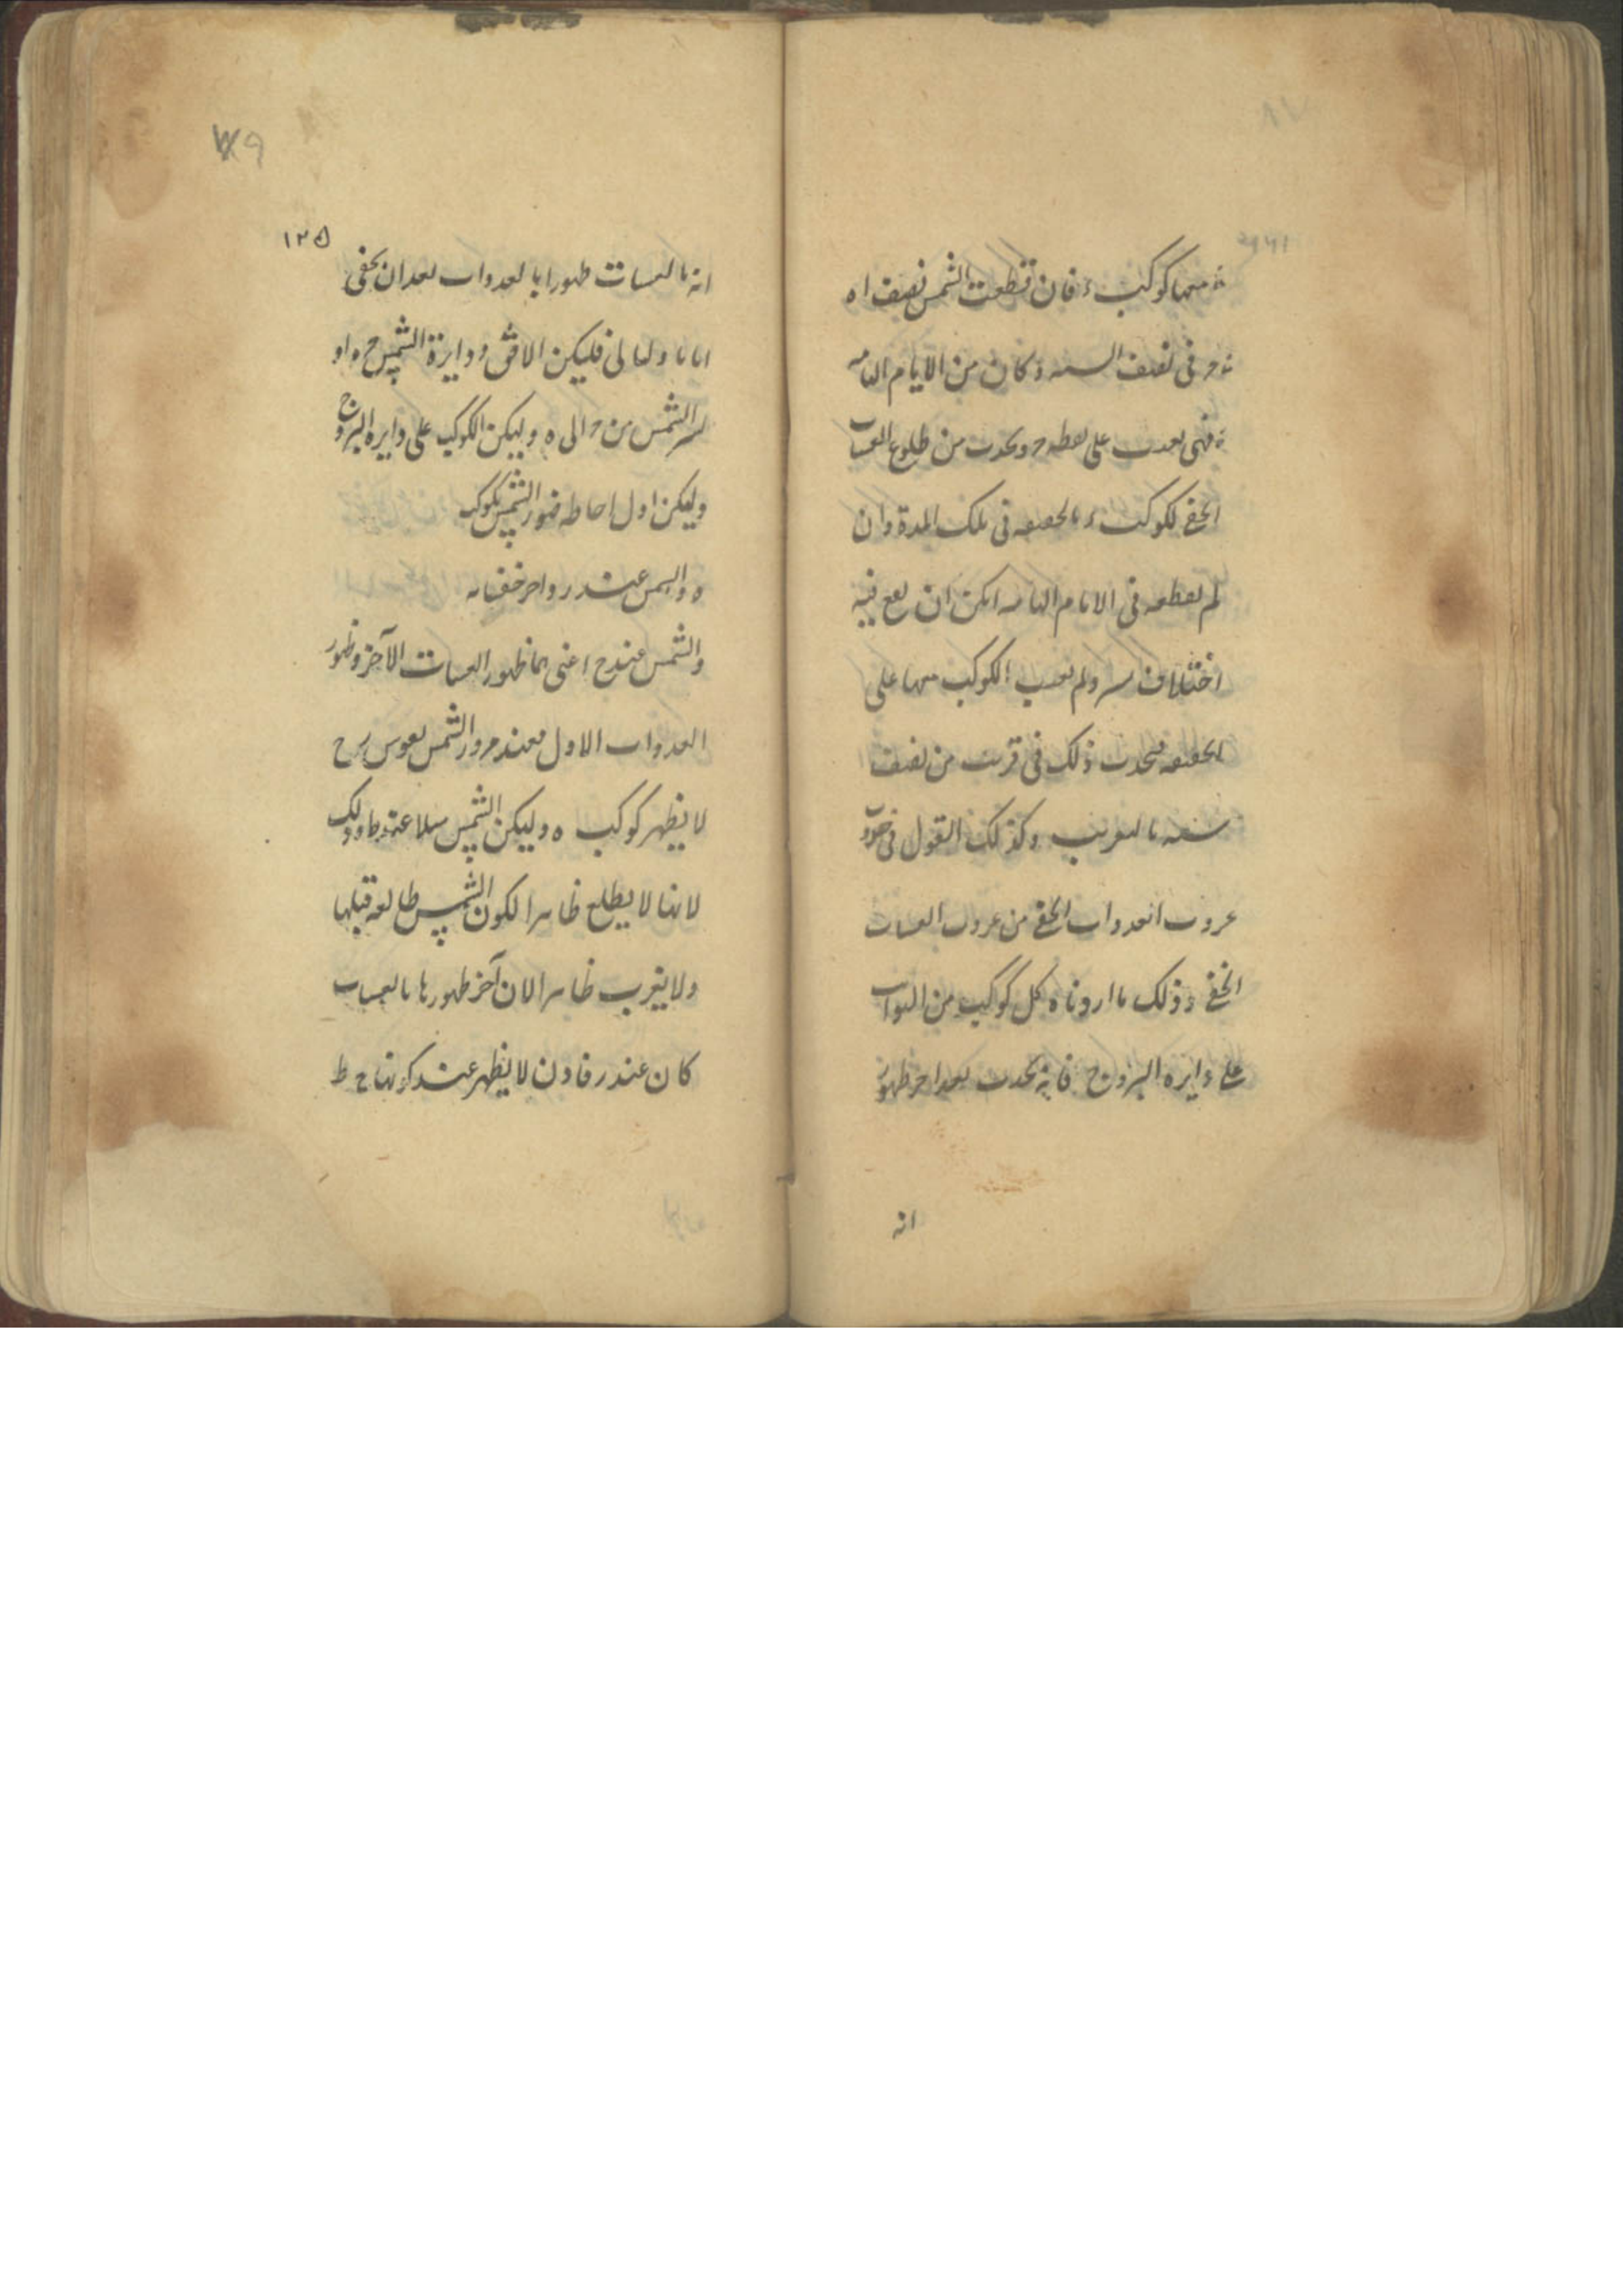 منها كوكب د فان قطعت الشمس نصف ا ه
د ح فى نصف السنه و كان من الايام التامه
فهى بعدت على نقطه ح و يحدث من طلوع العشيات
الخفى لكوكب د بالحقيقه فى تلك المدة و ان
لم يقطعه فى الايام التامه امكن ان يقع فيه
اختلاف يسير ولم يغب الكوكب معها على
الحقيقه فيحدث ذلك فى قريب من نصف
سنه بالتقريب وكذلك القول فى حدوث
غروب الغدوات الخفى من غروب العشيات
الخفى وذلك ما اردناه كل كوكب من الثوابت
على دايره البروج فانه يحدث بعد اخر ظهور
انه
١٢٥
انه بالعشيات ظهورا بالغدوات بعد ان يخفى
اياما وليالى فليكن الافق و دايرة الشمس ح ه او
الشمس من ح الى ه وليكن الكوكب على دايره البروج
وليكن اول احاطه ضور الشمس بكوكب
ه والشمس عند ر واخر خفائه
والشمس عند ح اعنى بهما ظهور العشيات الآخر وظهور
الغدوات الاول فعند مرور الشمس بقوس ر ح
لا يظهر كوكب ه وليكن الشمس مثلا عند ط وذلك
لانها لا يطلع ظاهرا لكون الشمس طالعه قبلها
ولا يغرب ظاهرا لان آخر ظهورها بالعشيات
كان عند ر فاذن لا يظهر عند كونها ح ط